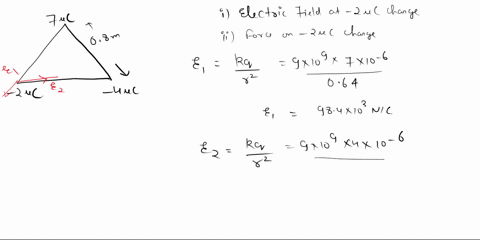 7μC
0.8m
E1
E2
-2μC
-4μC
i) Electric Field at -2μC change
ii) Force on -2μC change
E1 = kq/r² = 9×10⁹ × 7×10⁻⁶/0.64
E1 = 98.4×10³ N/C
E2 = kq/r² = 9×10⁹ ×4×10⁻⁶